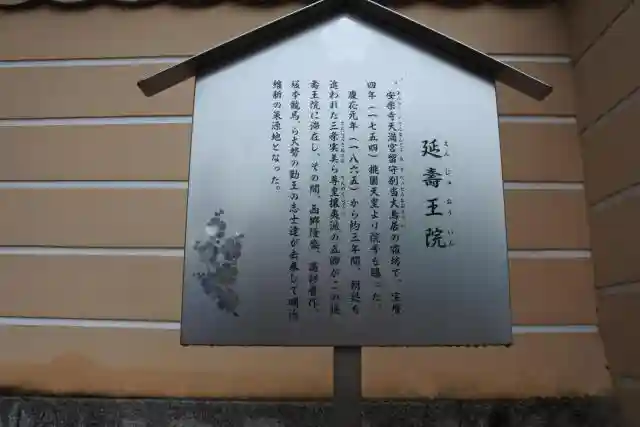 延壽王院
えんじゅおういん
安楽寺天満宮留守別当大鳥居の宿坊で、宝暦
四年（一七五四）桃園天皇より院号を賜った。
慶応元年（一八六五）から約三年間、朝廷を
追われた三条実美ら尊皇攘夷派の五卿がこの延
壽王院に滞在し、その間、西郷隆盛、高杉晋作、
坂本龍馬ら大勢の勤王の志士達が去来して明治
維新の策源地となった。